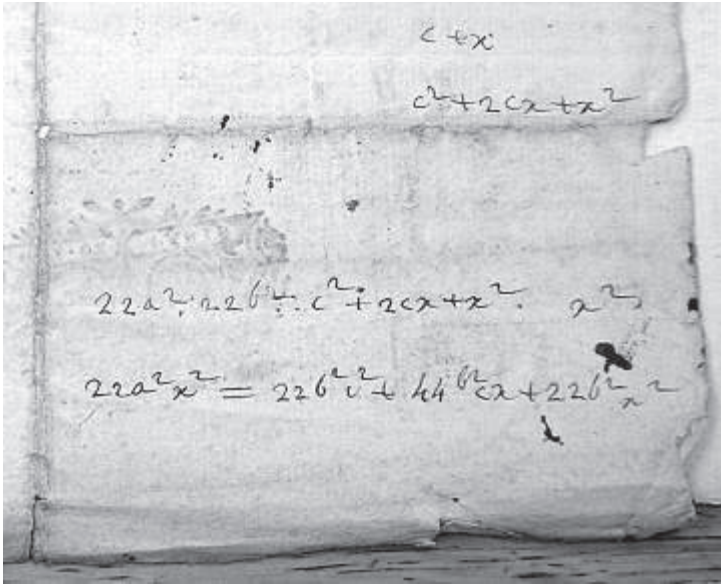 c+x
c²+2cx+x²
22a² : 22b² :: c²+2cx+x² . x²
22a²x² = 22b²c² + 44b²cx+22b²x²